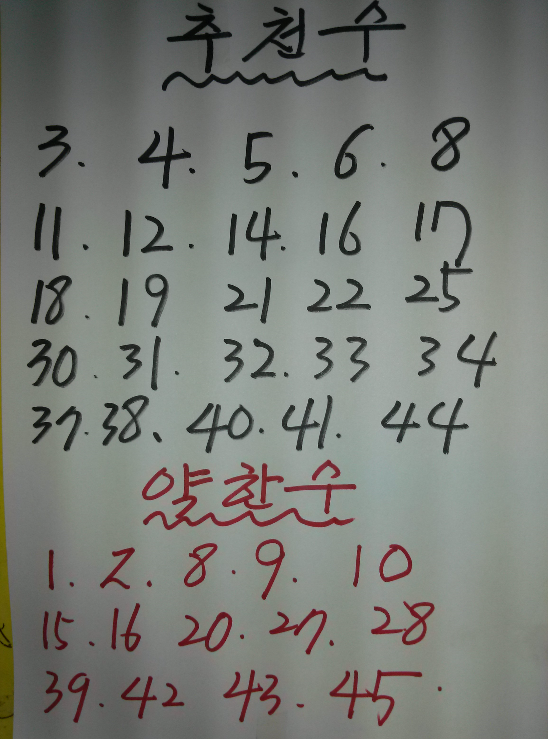 추천수
3. 4. 5. 6. 8
11. 12. 14. 16 17
18. 19 21 22 25
30. 31. 32. 33 34
37. 38. 40. 41. 44
약한수
1. 2. 8. 9. 10
15. 16 20. 27. 28
39. 42 43. 45.